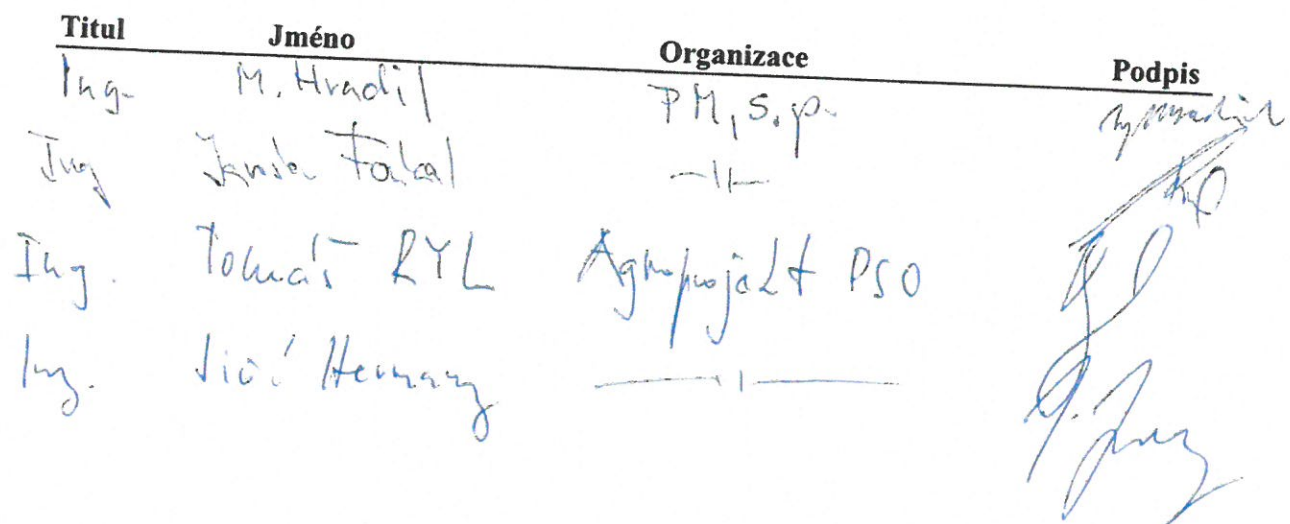 Titul Jméno Organizace Podpis
Ing. M. Hradil PM, s.p.
Ing -||-
Ing. Tomáš RYL Agroprojekt PSO
Ing. Jiří Hermany —||—